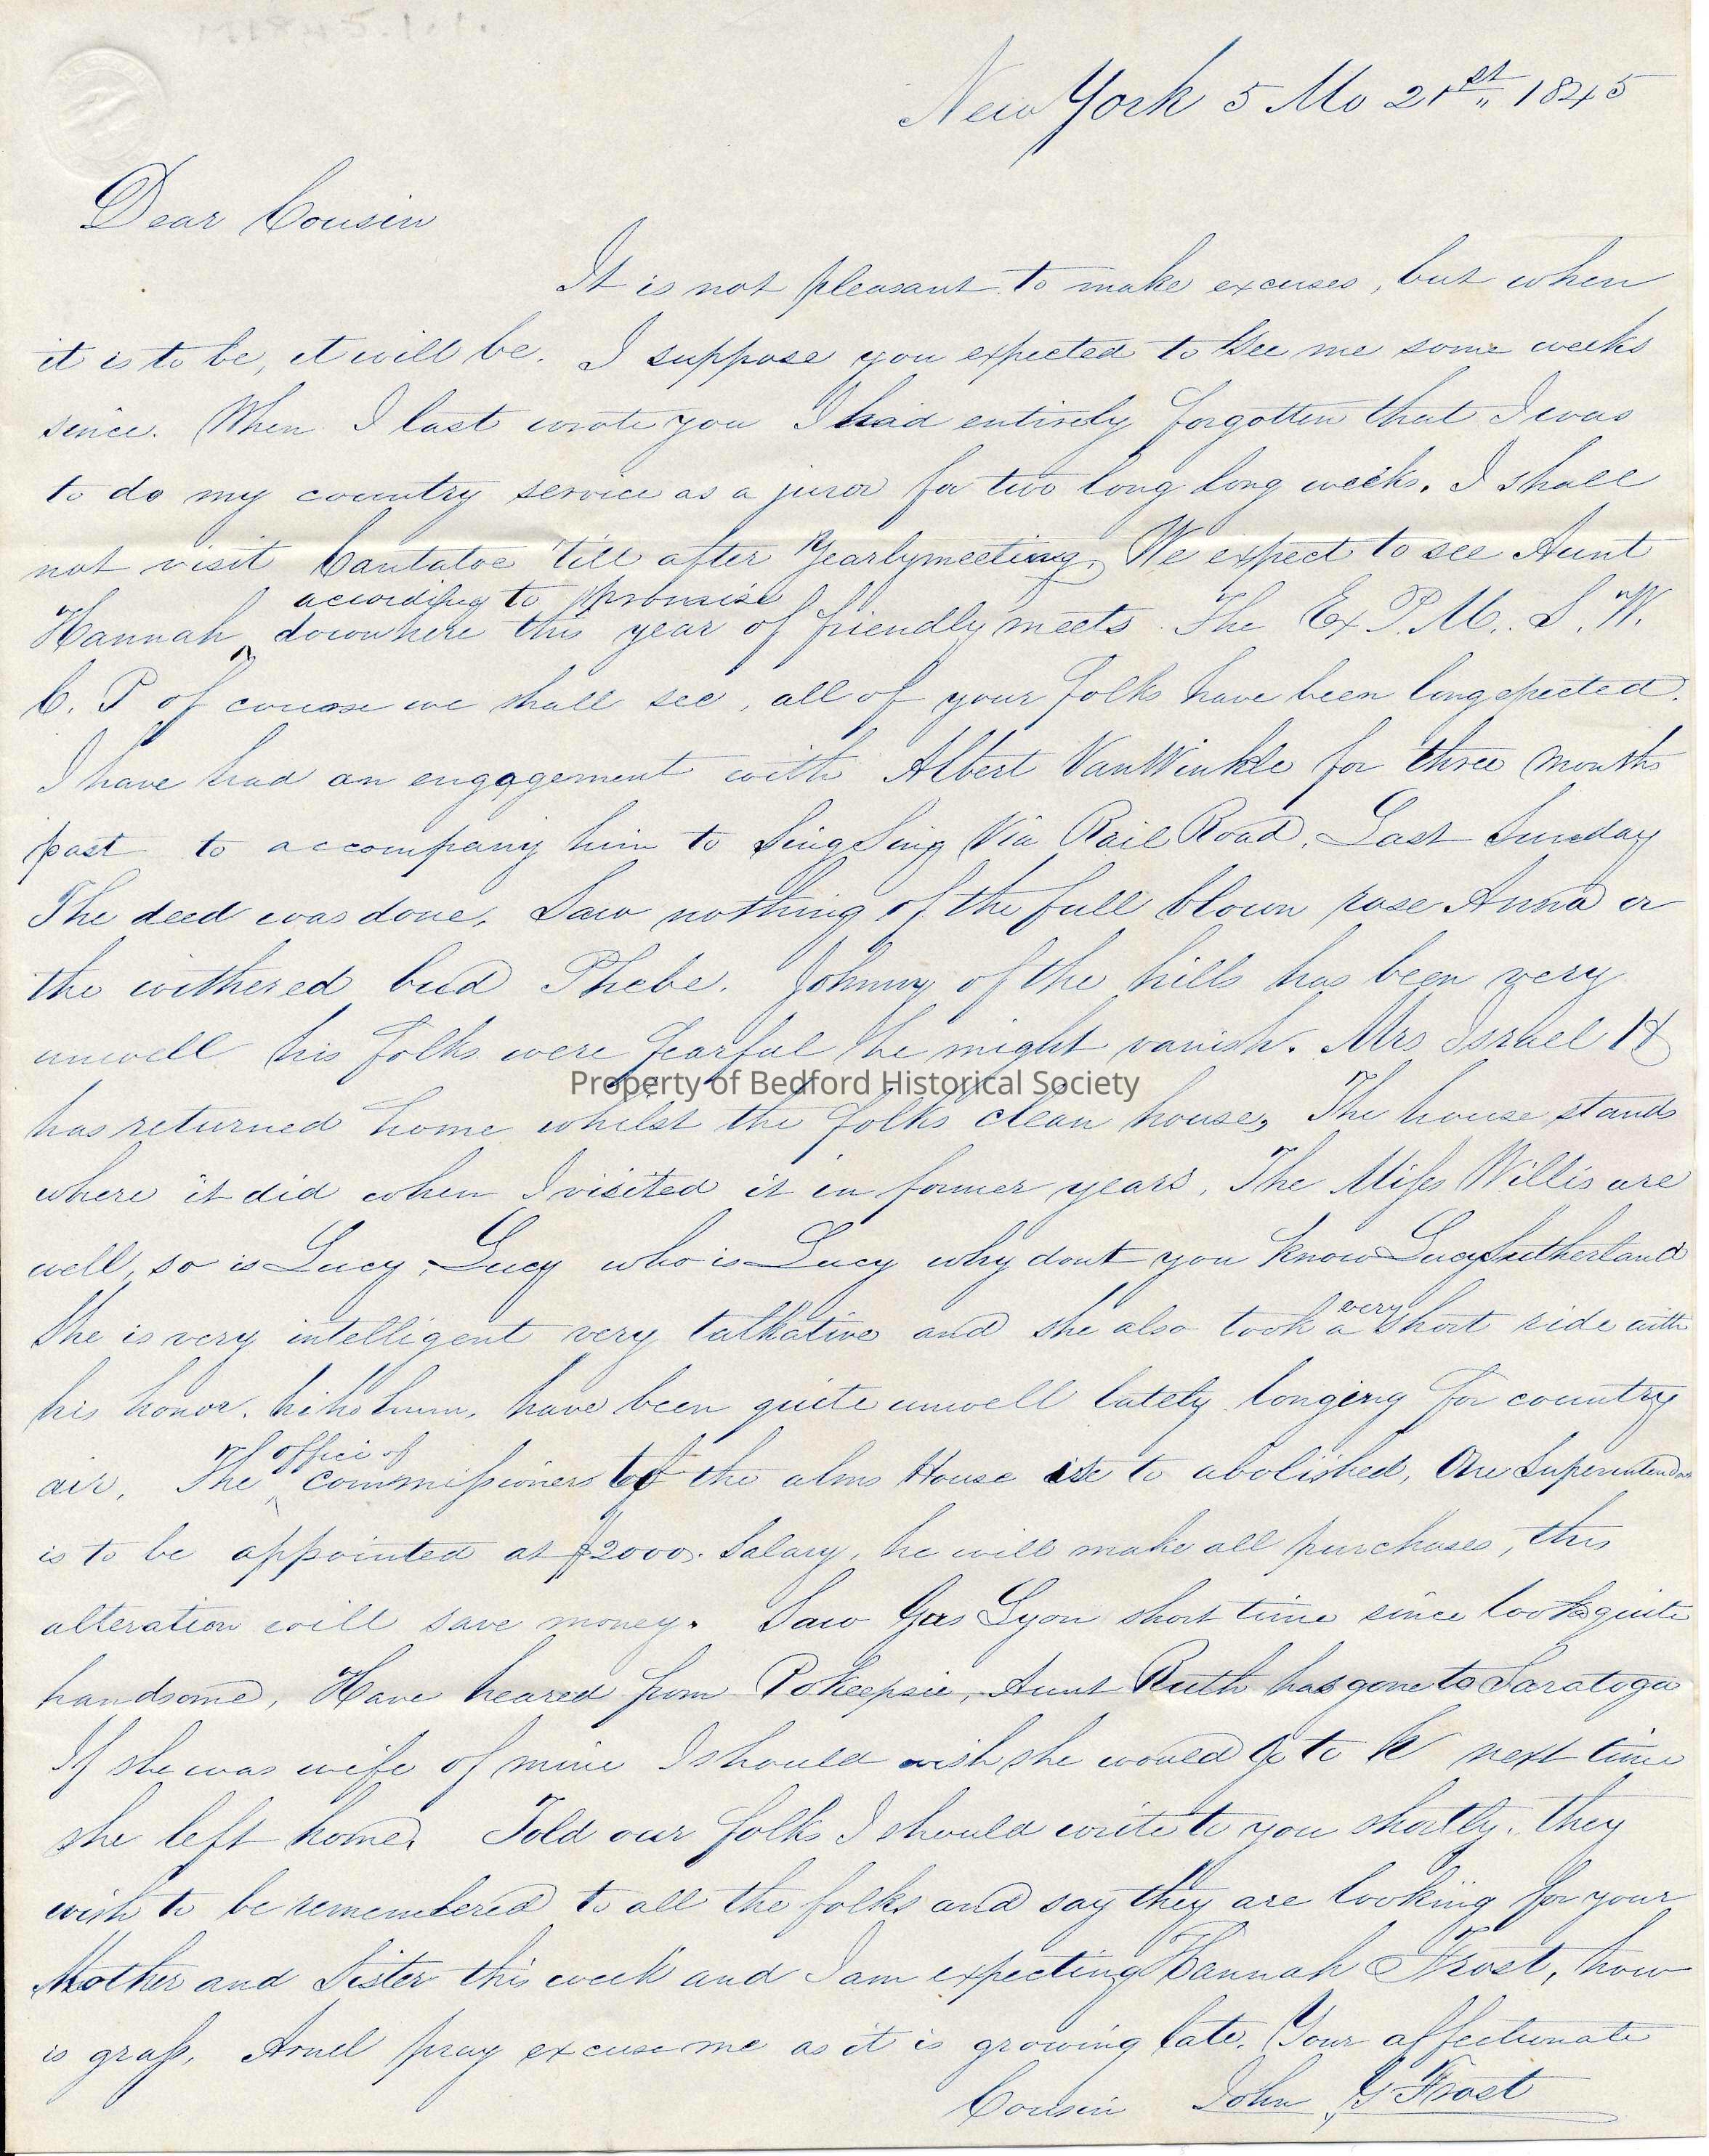 New York 5 Mo 21st 1845
Dear Cousin
It is not pleasant to make excuses, but when
it is to be, it will be. I suppose you expected to see me some weeks
since. When I last wrote you I had entirely forgotten that I was
to do my country service as a juror for two long long weeks. I shall
not visit Cantatoe till after Yearlymeeting. We expect to see Aunt
according to promise
Hannah down here this year of friendly meets. The Ex P. M. S. W.
C. P of course we shall see, all of your folks have been long epected.
I have had an engagement with Albert VanWinkle for three months
past to accompany him to Sing Sing Via Rail Road. Last Sunday
The deed was done. Saw nothing of the full blown rose Anna or
the withered bud Phebe. Johnny of the hills has been very
unwell his folks were fearful he might vanish. Mrs Israel H
Property of Bedford Historical Society
has returned home whilst the folks clean house, The house stands
where it did when I visited it in former years. The Misses Willis are
well, so is Lucy, Lucy who is Lucy why dont you know Lucy Sutherland
She is very intelligent very talkative and she also took a very short ride with
his honor. have been quite unwell lately longing for country
air, The office of commissioners of the alms House is to abolished, One Superintendant
is to be appointed at $2000. Salary, he will make all purchases, this
alteration will save money. Saw Lyon short time since looks quite
handsome, Have heared from Pokeepsie, Aunt Ruth has gone to Saratoga
If she was wife of mine I should wish she would go to next time
she left home. Told our folks I should write to you shortly, they
wish to be remembered to all the folks and say they are looking for your
Mother and Sister this week and I am expecting Hannah Frost, how
is grass, pray excuse me as it is growing late. Your affectionate
Cousin John G Frost